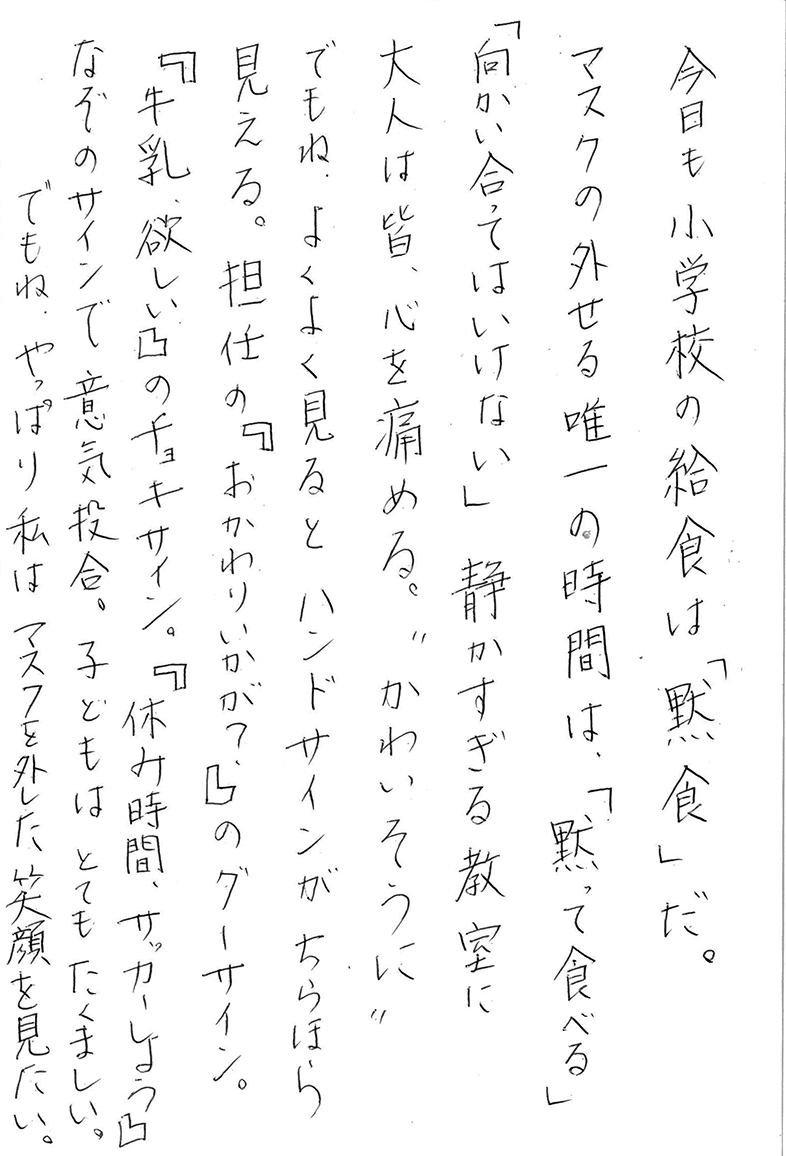 今日も小学校の給食は「黙食」だ。
マスクの外せる唯一の時間は、「黙って食べる」
「向かい合ってはいけない」静かすぎる教室に
大人は皆、心を痛める。〝かわいそうに〟
でもね、よくよく見ると ハンドサインが ちらほら
見える。担任の『おかわりいかが?』のグーサイン。
『牛乳、欲しい』のチョキサイン。『休み時間、サッカーしよう』
なぞのサインで意気投合。子どもは とても たくましい。
でもね、やっぱり私は マスクを外した 笑顔を見たい。